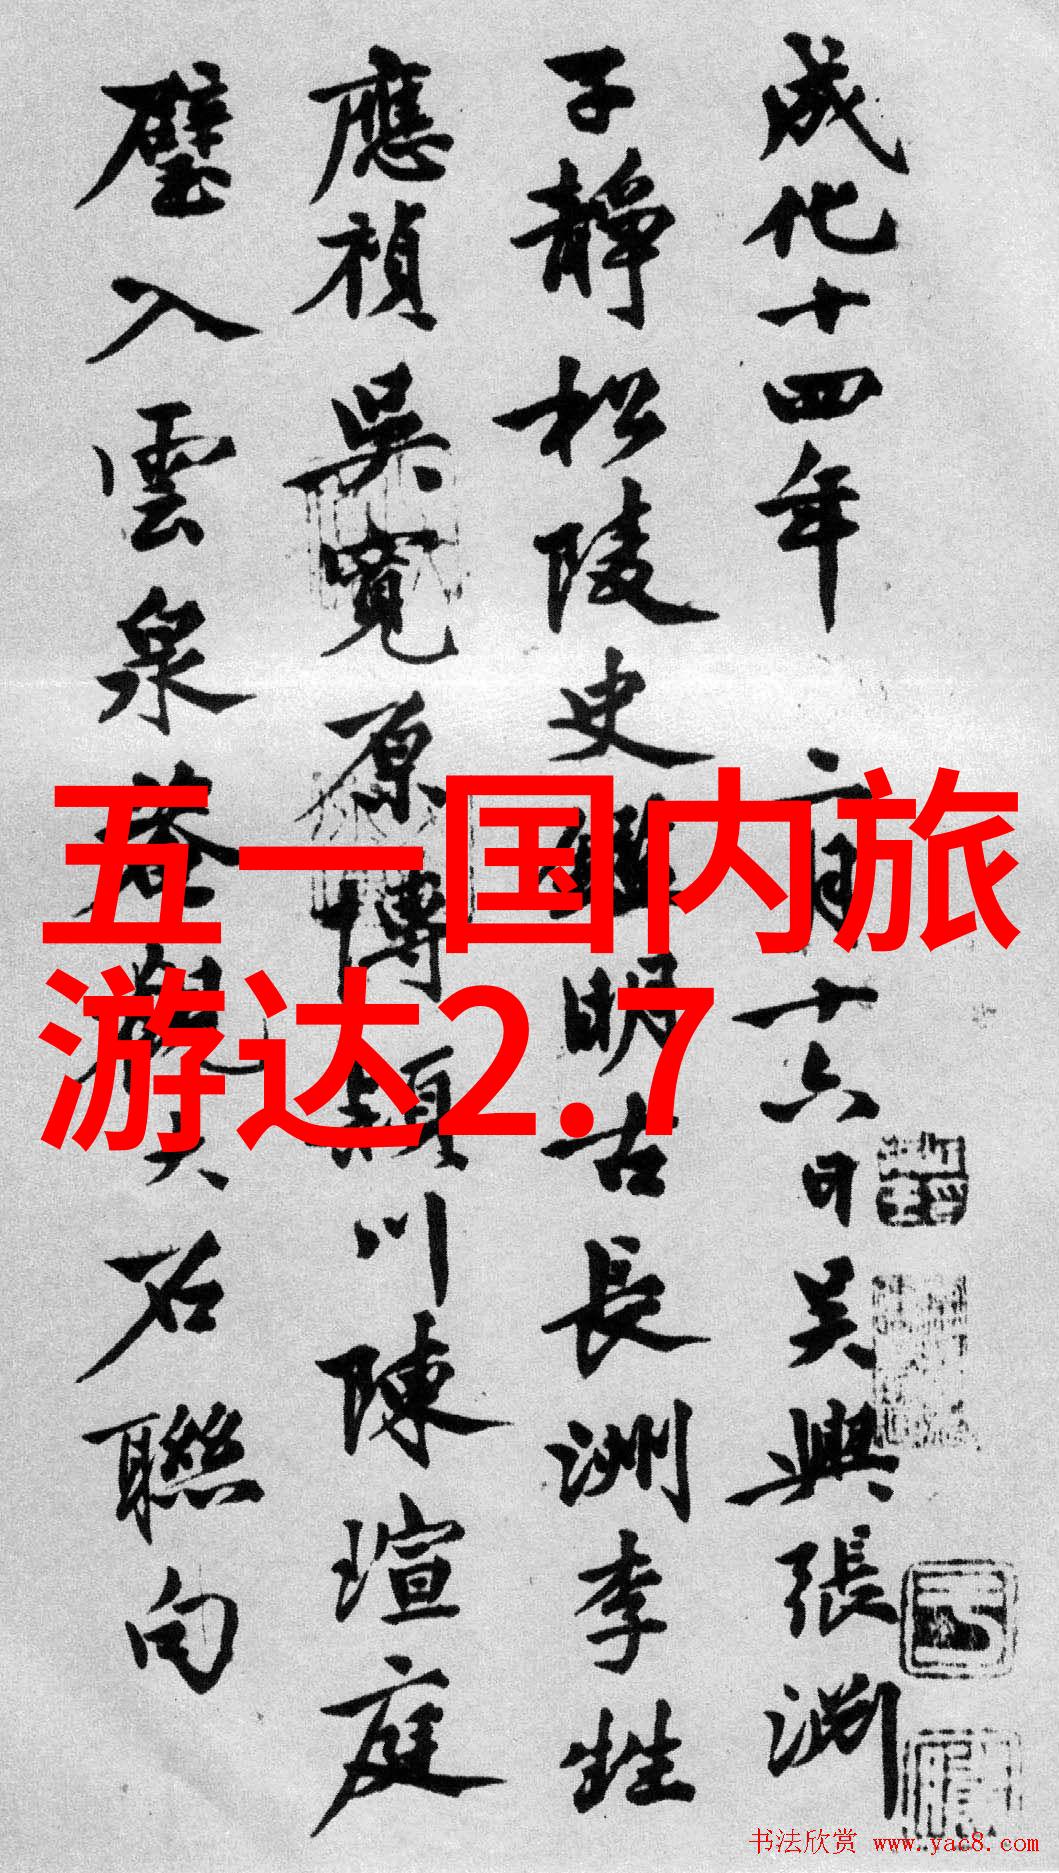 成化十四年二月十六日吳興張淵
子靜松陵史鑑明古長洲李甡
應禎吳寬原博潁川陳瑄庭
璧入雲泉菴觀大石聯句
五一国内旅
游达2.7
书法欣赏 www.yac8.com